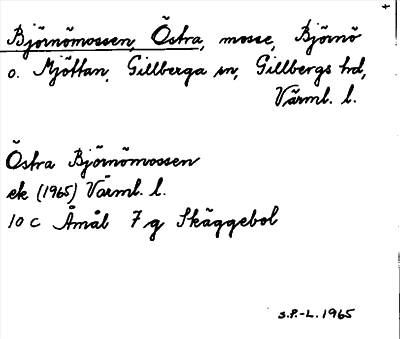 Björnömossen, Östra, mosse, Björnö
o. Mjöttan, Gillberga sn, Gillbergs hd,
Värml. l.
Östra Björnömossen
ek (1965) Värml. l.
10 C Åmål 7 g Skäggebol
S.P.-L. 1965